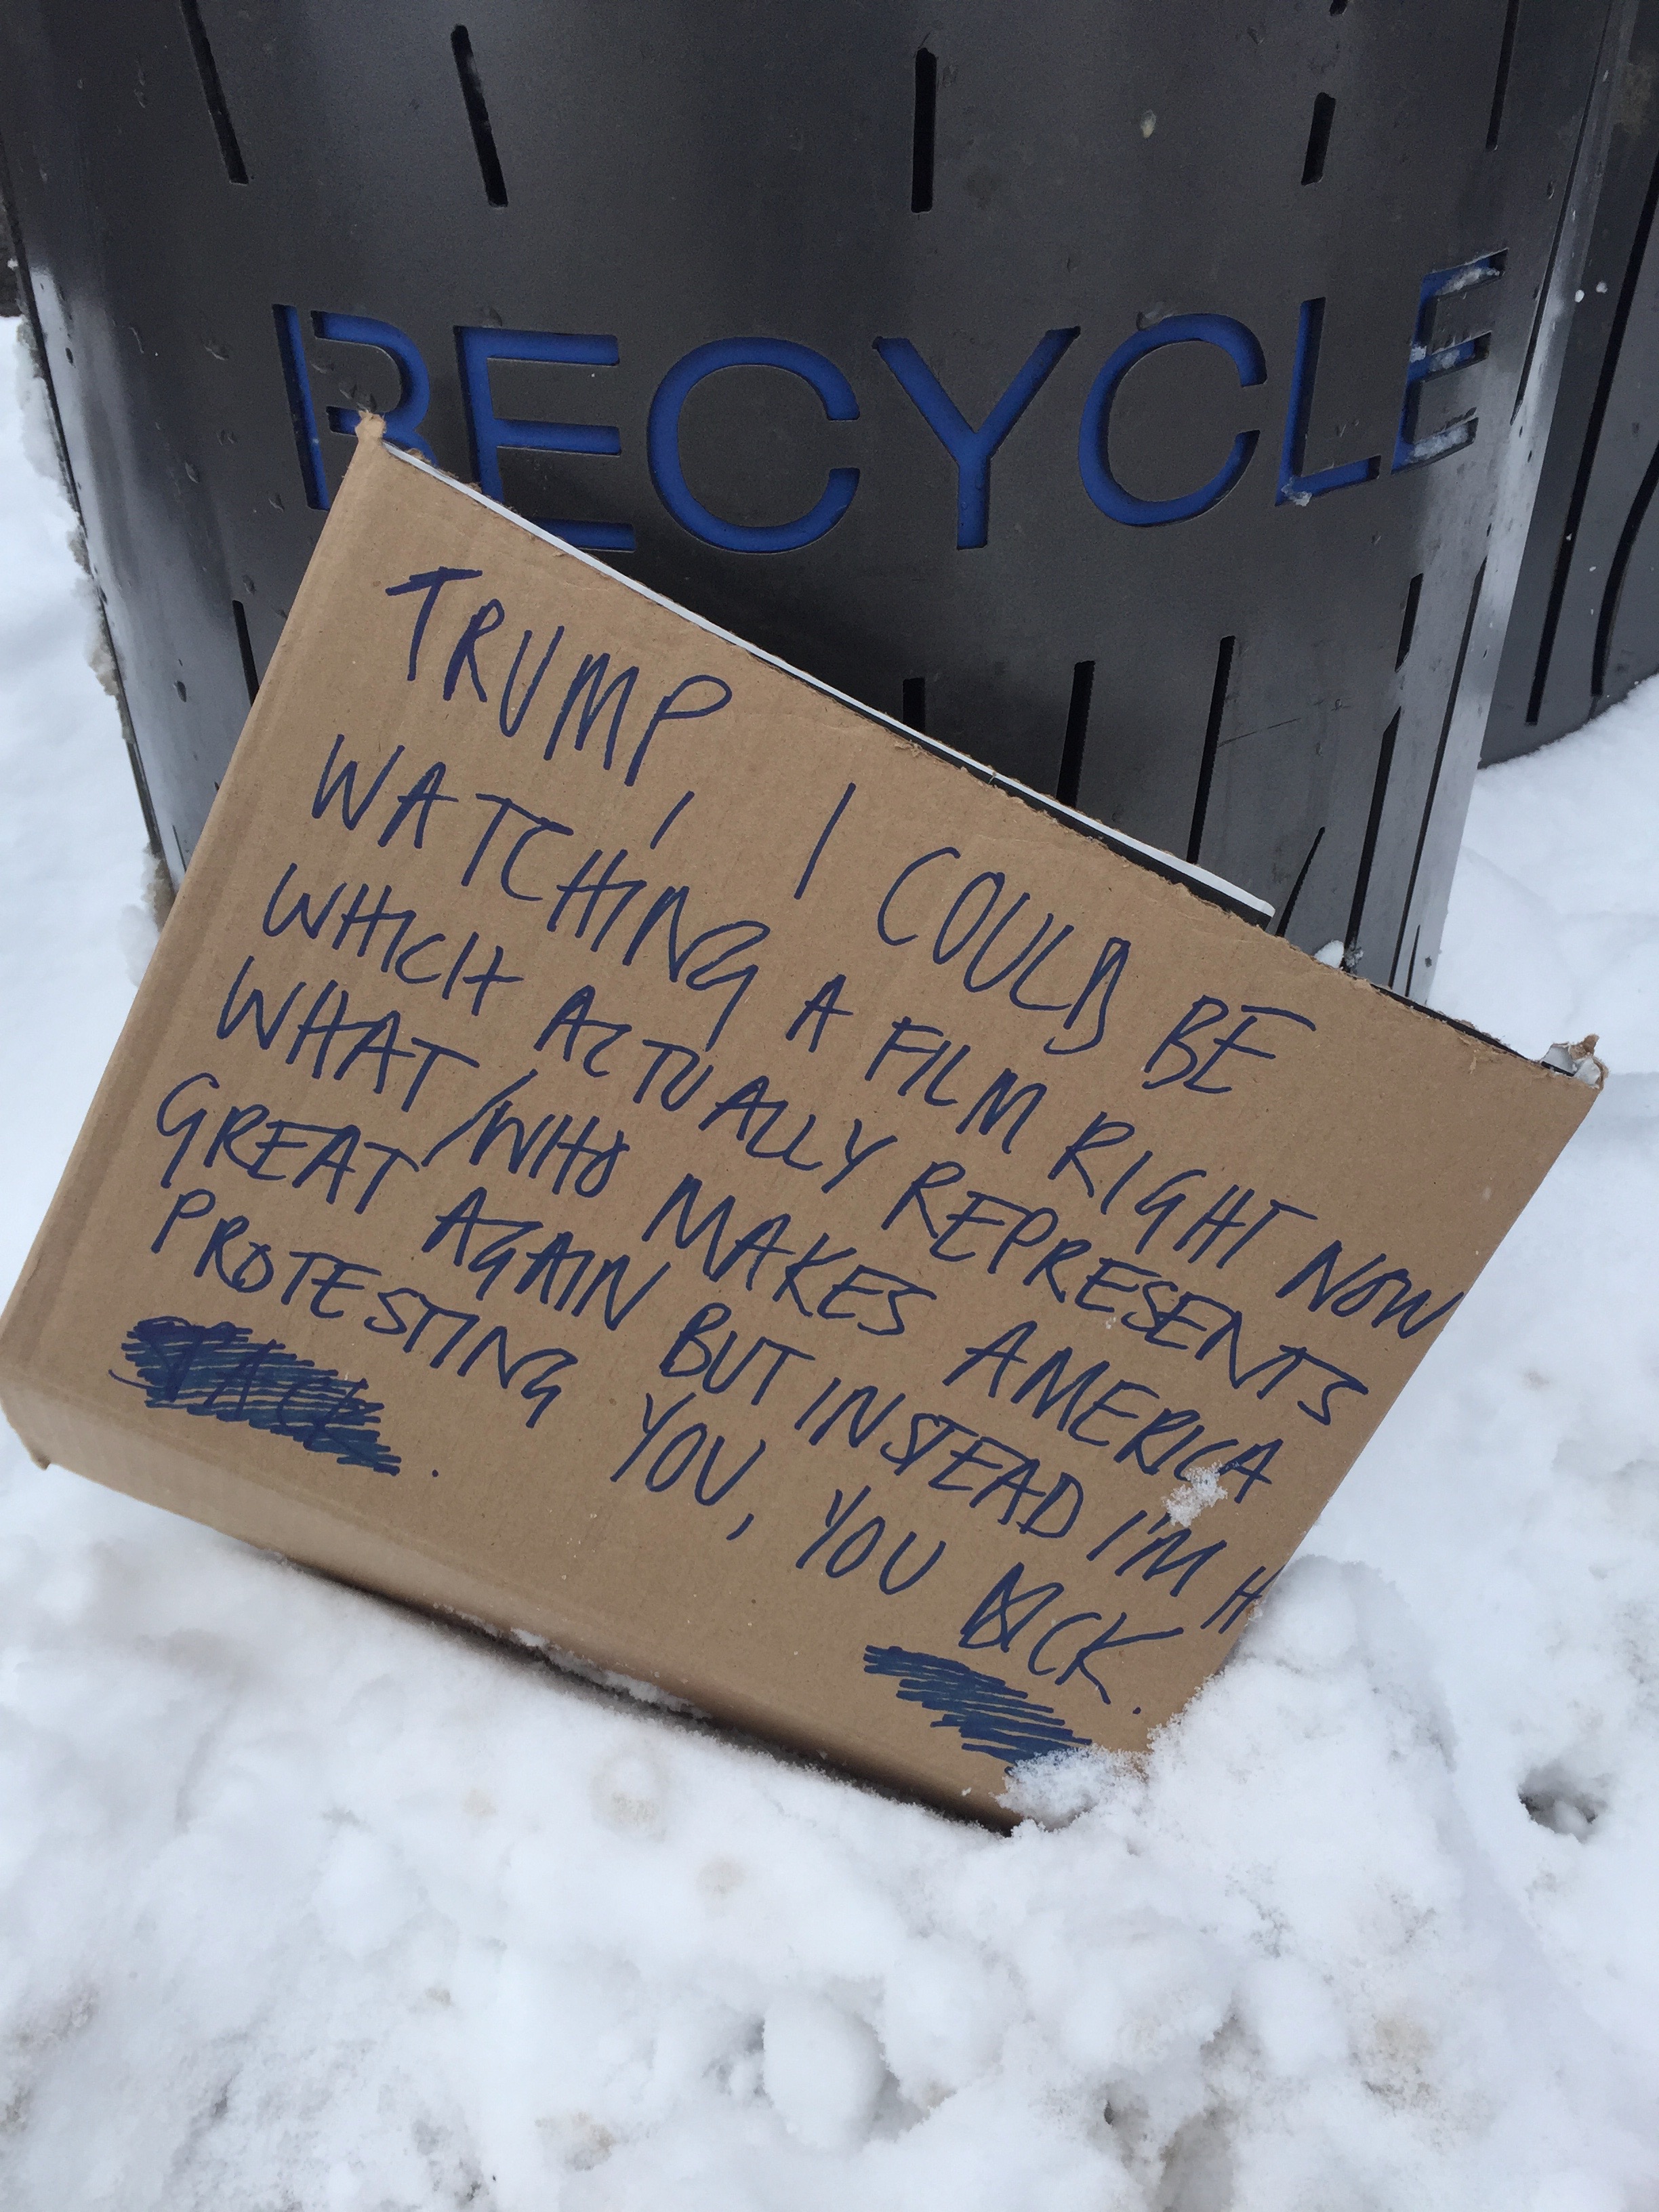 RECYCLE
TRUMP, I COULD BE
WATCHING A FILM RIGHT NOW
WHICH ACTUALLY REPRESENTS
WHAT/WHO MAKES AMERICA
GREAT AGAIN BUT INSTEAD I'M H
PROTESTING YOU, YOU DICK.